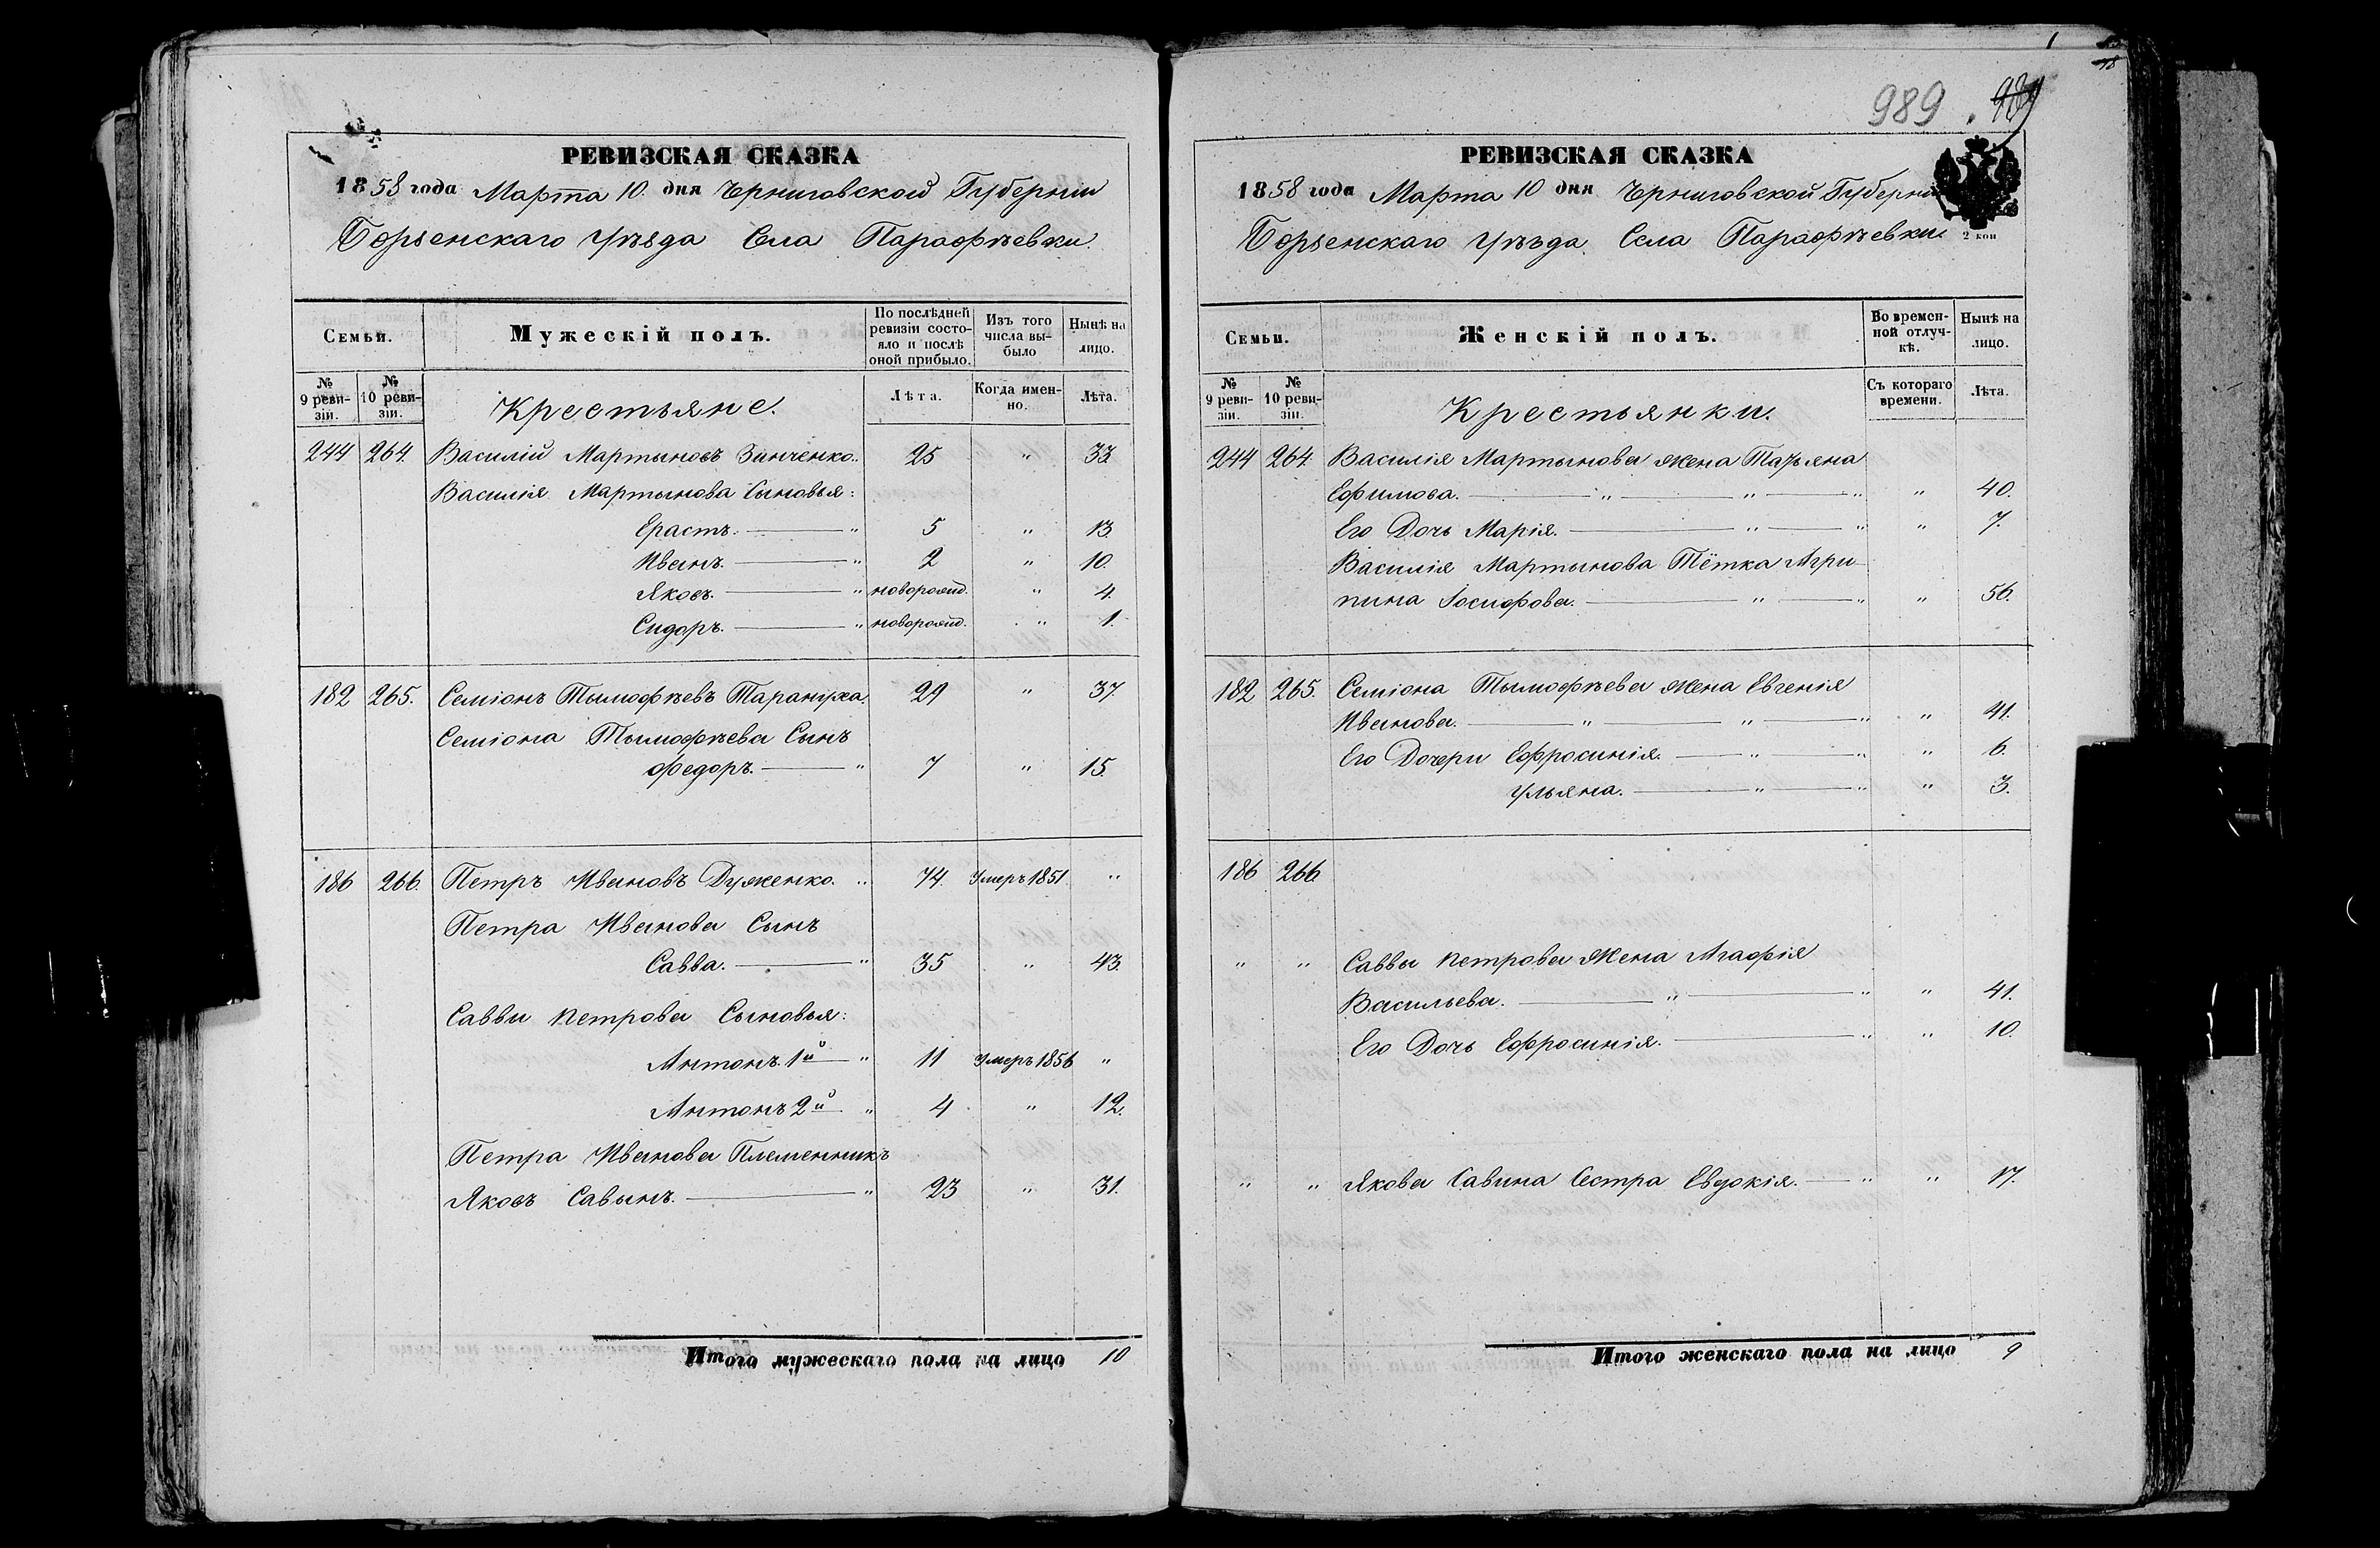 РЕВИЗСКАЯ СКАЗКА
1858 года Марта 10. дня Черниговской Губернии
Борзенскаго Уѣзда Села Парафѣевки.
Семьи.
Мужескій полъ.
По послѣдней ревизіи состояло и послѣ оной прибыло.
Изъ того числа выбыло
Нынѣ на лицо.
№ 9 ревизіи.
№ 10 ревизіи.
Крестьяне.
Лѣта.
Когда именно.
Лѣта.
244 264. Василій Мартыновъ Зинченко. „ 25 „ 33.
Василія Мартынова Сыновья:
Ерастъ. „ 5 „ 13.
Иванъ. „ 2 „ 10.
Яковъ. „ новорожд. „ 4.
Сидоръ. „ новорожд. „ 1.
182 265. Семіонъ Тымофѣевъ Тарануха. 29 „ 37
Семіона Тымофѣева Сынъ
Федоръ. „ 7 „ 15.
186 266. Петръ Ивановъ Дуженко. „ 74. Умеръ 1851. „
Петра Иванова Сынъ
Савва. „ 35 „ 43.
Саввы Петрова Сыновья:
Антонъ 1й „ 11 Умеръ 1856 „
Антонъ 2й „ 4 „ 12.
Петра Иванова Племенникъ
Яковъ Савынъ. „ 23 „ 31.
Итого мужескаго пола на лицо 10
1
18
989.
РЕВИЗСКАЯ СКАЗКА
1858 года Марта 10 дня Черниговской Губерни
Борзенскаго Уѣзда Села Парафѣевки.
2 коп
Семьи.
Женскій полъ.
Во временной отлучкѣ.
Нынѣ на лицо.
№ 9 ревизіи.
№ 10 ревизіи.
Крестьянки.
Съ котораго времени.
Лѣта.
244 264. Василія Мартынова жена Татьяна
Ефимова. „ „ „ „ 40.
Его Дочь Марія. „ „ „ 7.
Василія Мартынова Тётка Агри
пина Іосифова. „ „ „ 56.
182 265. Семіона Тымофѣева жена Евгенія
Иванова. „ „ „ „ 41.
Его Дочери Ефросинія. „ „ „ 6.
Ульяна. „ „ „ 3.
186 266.
„ „ Саввы Петрова жена Агафія
Васильева. „ „ „ 41.
Его Дочь Ефросинія. „ „ 10.
„ „ Якова Савина Сестра Евдокія. „ „ 17.
Итого женскаго пола на лицо 9